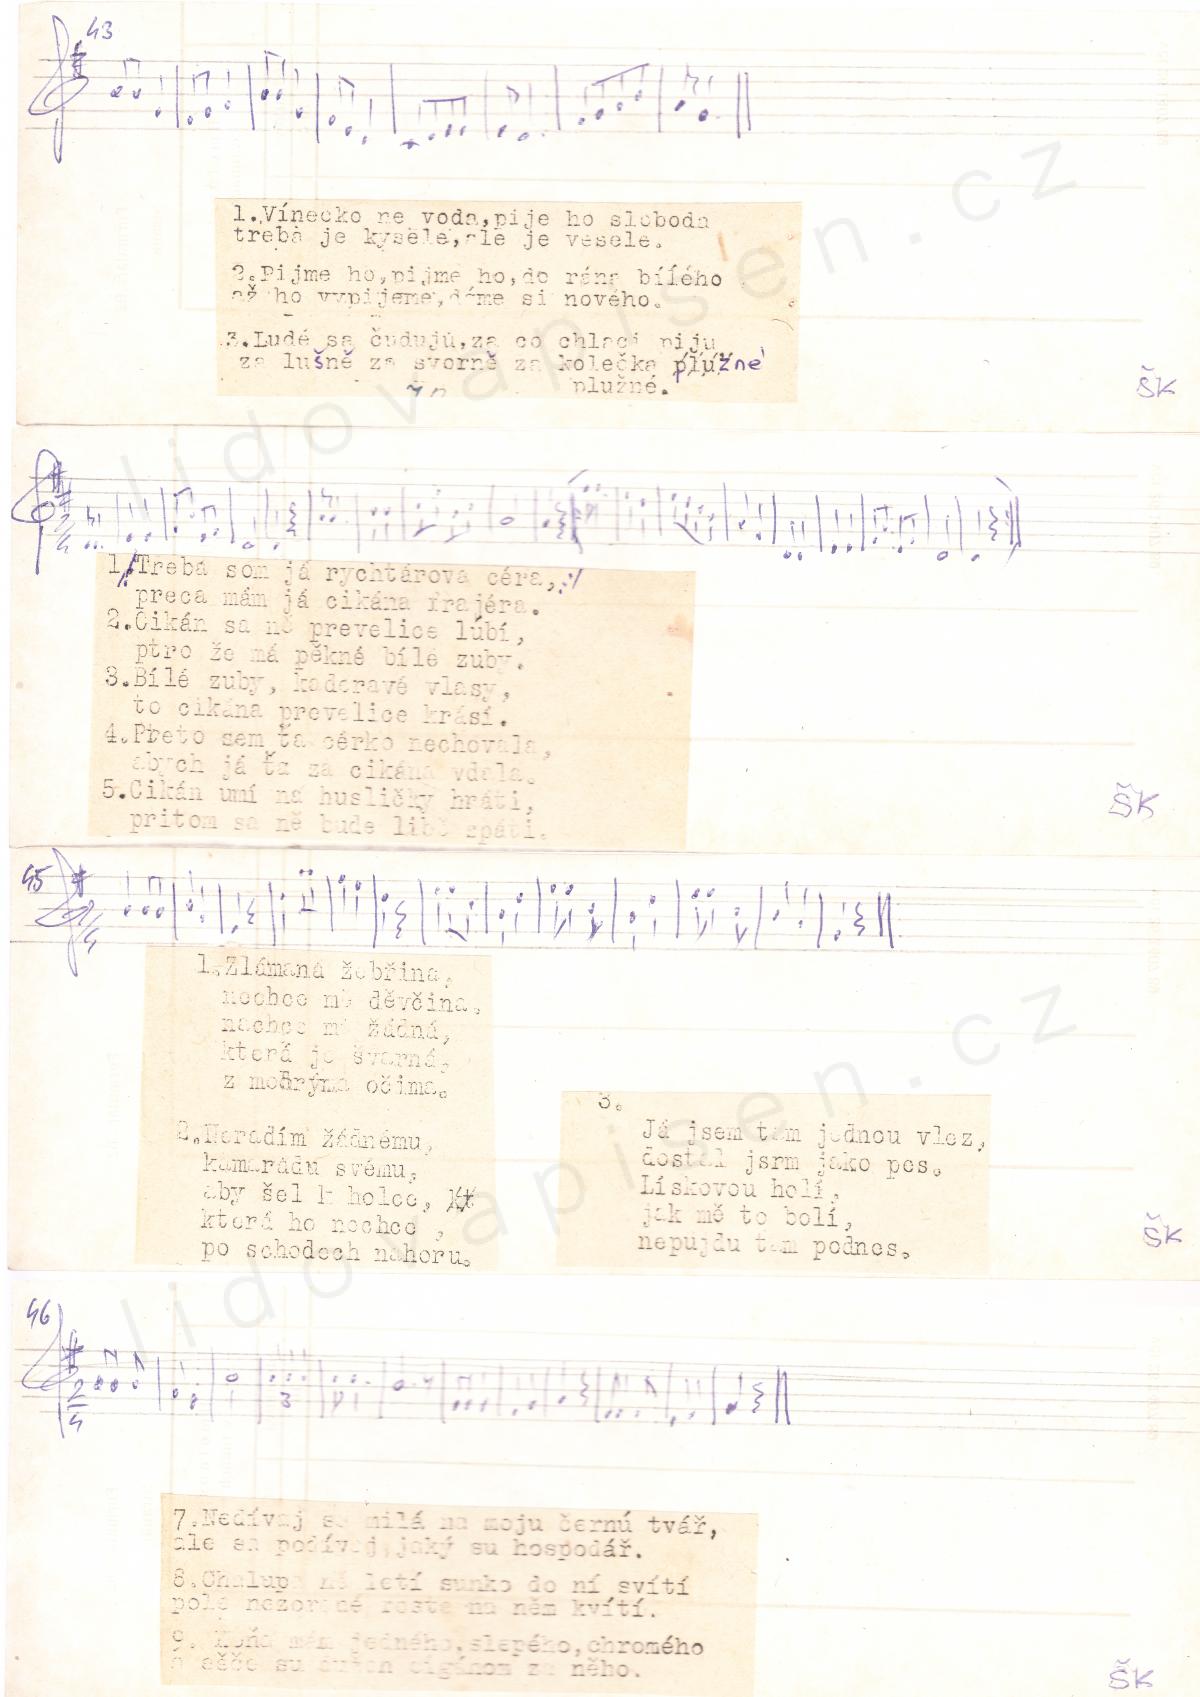 43
1.Vínecko ne voda,pije ho sloboda
treba je kyselé,ale je veselé.
2.Pijme ho,pijme ho,do rána bílého
až ho vypijeme,dáme si nového.
3.Ludé sa čudujú,za co chlaci piju
za lušně za svorně za kolečka plužné
plužné.
ŠK
2/4
1.Treba som já rychtárova céra,:/
preca mám já cikána frajéra.
2.Cikán sa ně prevelice lúbí,
ptro že má pěkné bílé zuby.
3.Bílé zuby, kaderavé vlasy,
to cikána prevelice krásí.
4.Preto sem ťa cérko nechovala,
abych já ťa za cikána vdala.
5.Cikán umí na husličky hráti,
pritom sa ně bude libo spáti.
ŠK
45
2/4
1.Zlámaná žebřina,
nechce mě děvčina,
nechce mě žádná,
která je švarná,
z modrýma očima.
2.Neradím žádnému,
kamarádu svému,
aby šel k holce,
která ho nechce ,
po schodech nahoru.
3.
Já jsem tam jednou vlez,
dostal jsrm jako pes.
Lískovou holí,
jak mě to bolí,
nepujdu tam podnes.
ŠK
46
2/4
7.Nedívaj sa milá na moju černú tvář,
ale sa podívaj,jaký su hospodář.
8.Chalupa ně letí sunko do ní svítí
pole nezorané roste na něm kvítí.
9. Koňa mám jedného,slepého,chromého
a ešče su dužen cigánom za něho.
ŠK
lidovapisen.cz
lidovapisen.cz